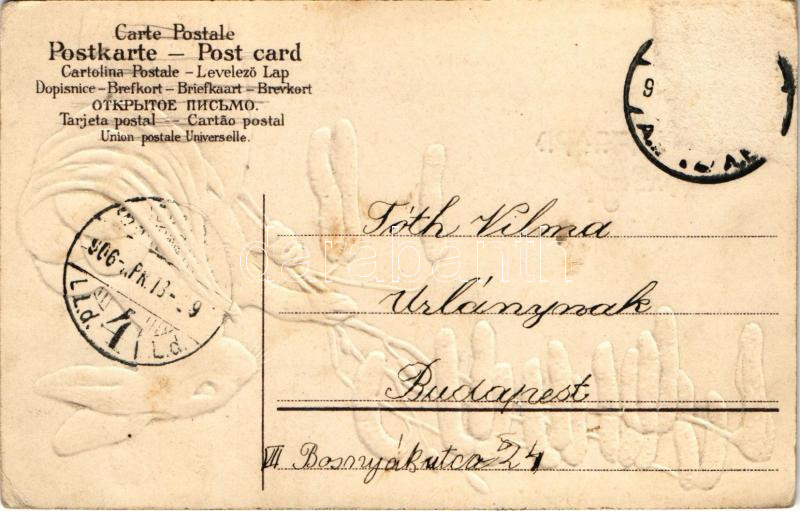 Carte Postale
Postkarte – Post card
Cartolina Postale – Levelező Lap
Dopisnice – Brefkort – Briefkaart – Brevkort
ОТКРЫТОЕ ПИСЬМО.
Tarjeta postal -- Cartão postal
Union postale Universelle.
9
906
Tóth Vilma
Urlánynak
Budapest
VII Bosnyákutca 24
darabanth